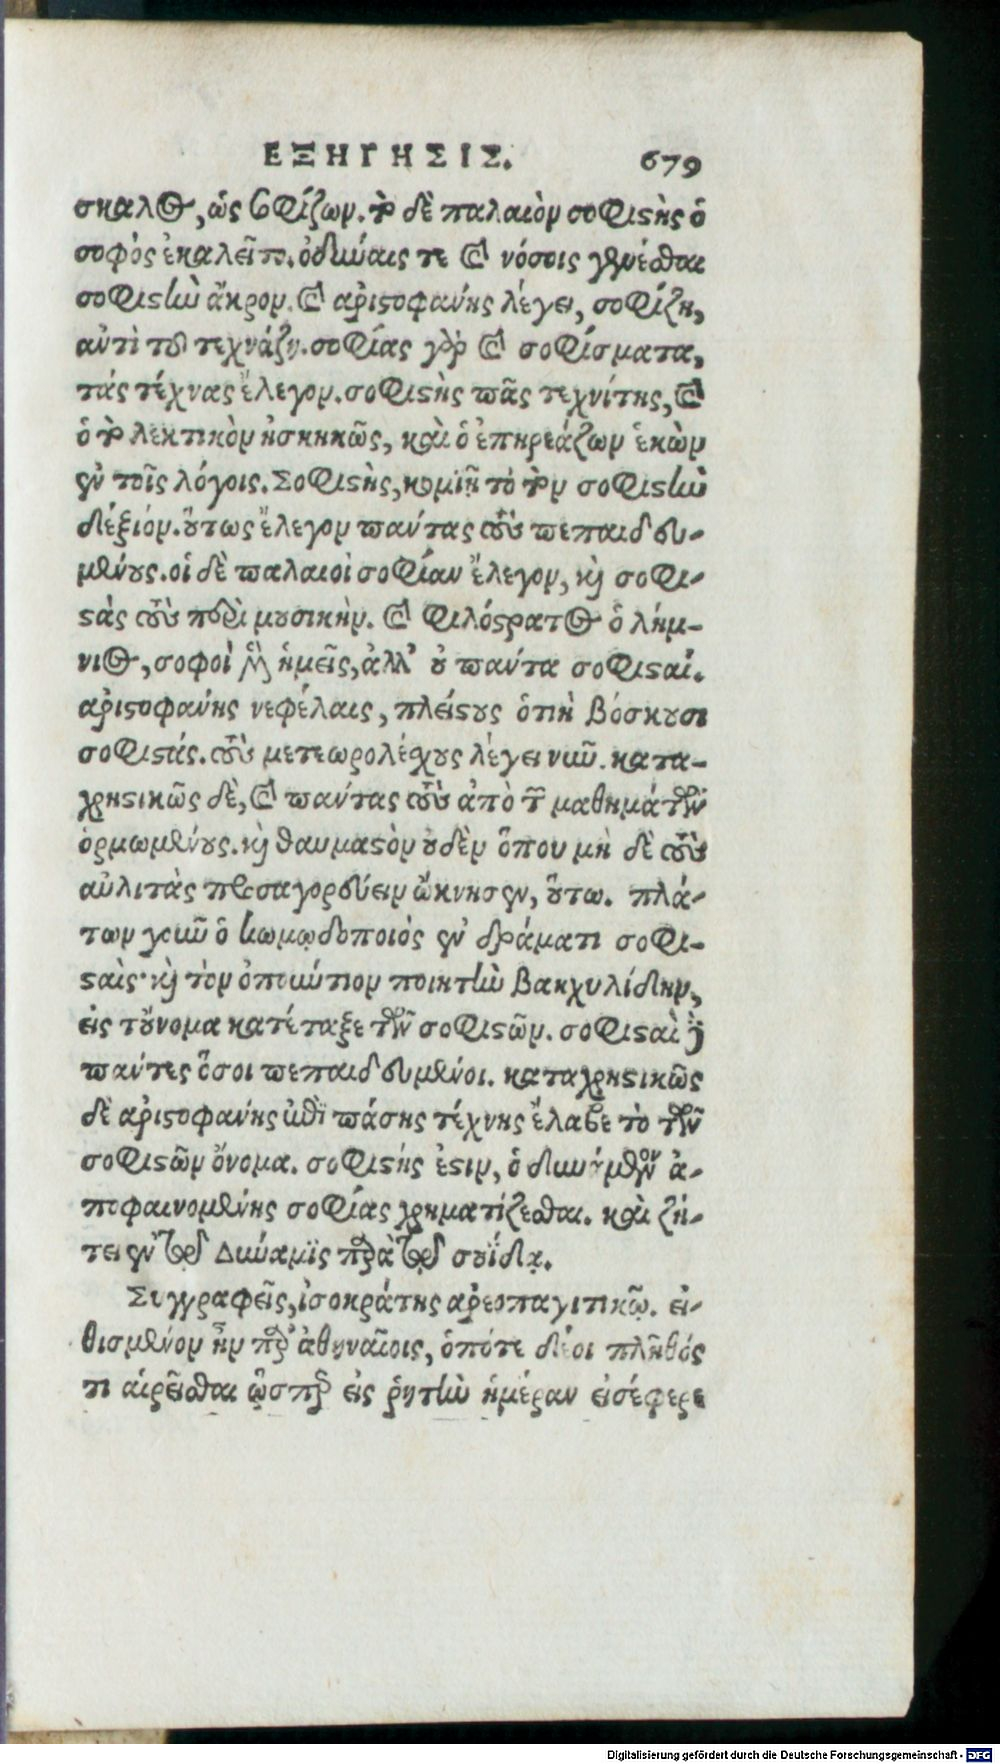 ΕΞΗΓΗΣΙΣ. 679
σκαλος, ὡς σοφίζων. τὸ δὲ παλαιὸν σοφιστὴς ὁ
σοφὸς ἐκαλεῖτο. ὀδύναις τε καὶ νόσοις γενέσθαι
σοφιστὴν ἄκρον. καὶ ἀριστοφάνης λέγει, σοφίζῃ,
αὐτὶ τοῦ τεχνάζῃ. σοφίας γὰρ καὶ σοφίσματα,
τάς τέχνας ἔλεγον. σοφιστὴς πᾶς τεχνίτης, καὶ
ὁ τὸ λεκτικὸν ἠσκηκῶς, καὶ ὁ ἐπηρεάζων ἑκὼν
ἐν τοῖς λόγοις. Σοφιστὴς, κομιδῇ τὸ τὸν σοφιστὴν
δέξιόν. οὕτως ἔλεγον πάντας τοὺς πεπαιδευ-
μένους. οἱ δὲ παλαιοὶ σοφίαν ἔλεγον, καὶ σοφι-
στὰς τοὺς περὶ μουσικὴν. καὶ φιλόστρατος ὁ λήμ-
νιος, σοφοὶ μὲν ἡμεῖς, ἀλλ' οὐ πάντα σοφισταί.
ἀριστοφάνης νεφέλαις, πλείστους ὁτιὴ βόσκουσι
σοφιστάς. τοὺς μετεωρολέσχους λέγει νῦν. κατα-
χρηστικῶς δὲ, καὶ πάντας τοὺς ἀπὸ τῶν μαθημάτων
ὁρμωμένους. καὶ θαυμαστὸν οὐδὲν ὅπου μὴ δὲ τοὺς
αὐλιτὰς προσαγορεύειν ὤκνησεν, οὕτω. πλά-
των γοῦν ὁ κωμῳδοποιός ἐν δράματι σοφι-
σταὶς· καὶ τὸν ὀπούντιον ποιητὴν Βακχυλίδην,
εἰς τοὔνομα κατέταξε τῶν σοφιστῶν. σοφισταὶ δὲ
πάντες ὅσοι πεπαιδευμένοι. καταχρηστικῶς
δὲ ἀριστοφάνης ἐπὶ πάσης τέχνης ἔλαβε τὸ τῶν
σοφιστῶν ὄνομα. σοφιστής ἐστιν, ὁ δυνάμενον ἀ-
ποφαινομένης σοφίας χρηματίζεσθαι. καὶ ζή-
τει ἐν τῷ Δύναμϊς παρὰ τῷ σουΐδᾳ.
Συγγραφεῖς, ἰσοκράτης ἀρεοπαγιτικῷ. εἰ-
θισμένον ἦν παρ' ἀθηναῖοις, ὁπότε δέοι πλῆθός
τι αἱρεῖσθαι ᾧσπερ εἰς ῥητὴν ἡμέραν εἰσέφερε
Digitalisierung gefördert durch die Deutsche Forschungsgemeinschaft - DFG